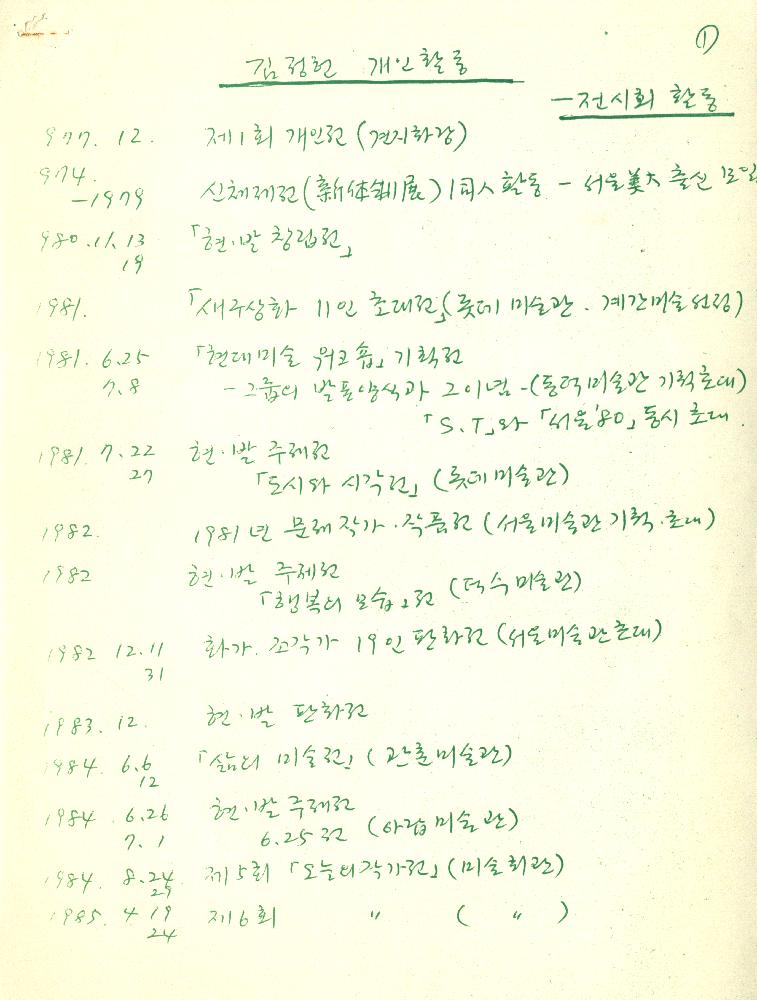 ①
김정헌 개인활동
— 전시회 활동
977. 12. 제1회 개인전 (견지화랑)
974.
-1979 신체제전 (新体制展) 同人 활동 - 서울美大 출신 모임
980. 11. 13 「현·발 창립전」
19
1981. 「새구상화 11인 초대전」 (롯데 미술관. 계간미술 선정)
1981. 6.25 「현대미술 워크숍」 기획전
7.8 - 그룹의 발표양식과 그 이념 - (동덕미술관 기획초대)
「S.T」와 「서울'80」 동시 초대.
1981. 7.22 현·발 주제전
27 「도시와 시각전」 (롯데미술관)
1982. 1981년 문제작가·작품전 (서울미술관 기획·초대)
1982 현·발 주제전
「행복의 모습」전 (덕수미술관)
1982 12.11 화가. 조각가 19인 판화전 (서울미술관초대)
31
1983. 12. 현·발 판화전
1984. 6.6 「삶의 미술전」 (관훈미술관)
12
1984 6.26 현·발 주제전
7.1 6.25전 (아랍미술관)
1984. 8.24 제5회 「오늘의 작가전」 (미술회관)
29
1985. 4 19 제6회 〃 ( 〃 )
24